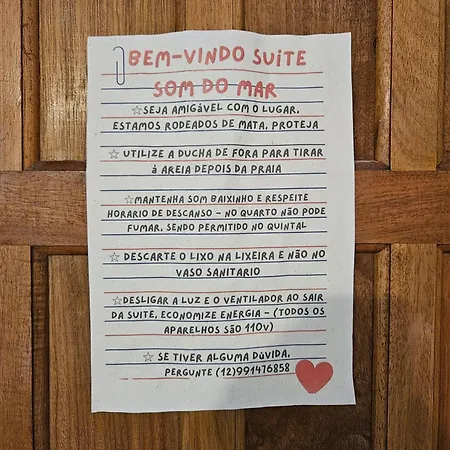 BEM-VINDO SUITE
SOM DO MAR
☆SEJA AMIGÁVEL COM O LUGAR,
ESTAMOS RODEADOS DE MATA, PROTEJA
☆ UTILIZE A DUCHA DE FORA PARA TIRAR
á AREIA DEPOIS DA PRAIA
☆MANTENHA SOM BAIXINHO E RESPEITE
HORARIO DE DESCANSO - NO QUARTO NÃO PODE
FUMAR, SENDO PERMITIDO NO QUINTAL
☆ DESCARTE O LIXO NA LIXEIRA E NÃO NO
VASO SANITARIO
☆DESLIGAR A LUZ E O VENTILADOR AO SAIR
DA SUITE, ECONOMIZE ENERGIA - (TODOS OS
APARELHOS SÃO 110V)
☆ SE TIVER ALGUMA DÚVIDA,
PERGUNTE (12)991476858